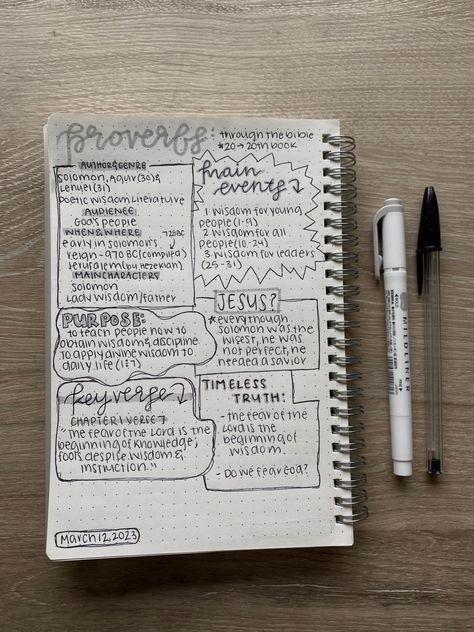 proverbs:
through the bible
*20 → 20th book
AUTHOR & GENRE
Solomon, Agur (30) &
Lemuel (31)
Poetic Wisdom Literature
AUDIENCE
God's people
WHEN & WHERE
early in Solomon's
reign - 970 BC (compiled)
Jerusalem (by Hezekiah)
MAIN CHARACTERS
Solomon
Lady Wisdom/Father
main
events
1 wisdom for young
people (1-9)
2 wisdom for all
people (10-24)
3 wisdom for leaders
(25-31)
PURPOSE:
to teach people how to
obtain wisdom & discipline
to apply divine wisdom to
daily life (1:7)
JESUS?
*even though
Solomon was the
wisest, he was
not perfect, he
needed a savior
key verse
CHAPTER 1 VERSE 7
"The fear of the Lord is the
beginning of knowledge;
fools despise wisdom &
instruction."
TIMELESS
TRUTH:
- the fear of the
Lord is the
beginning of
wisdom.
- Do we fear God?
March 12, 2023
MILDLINER